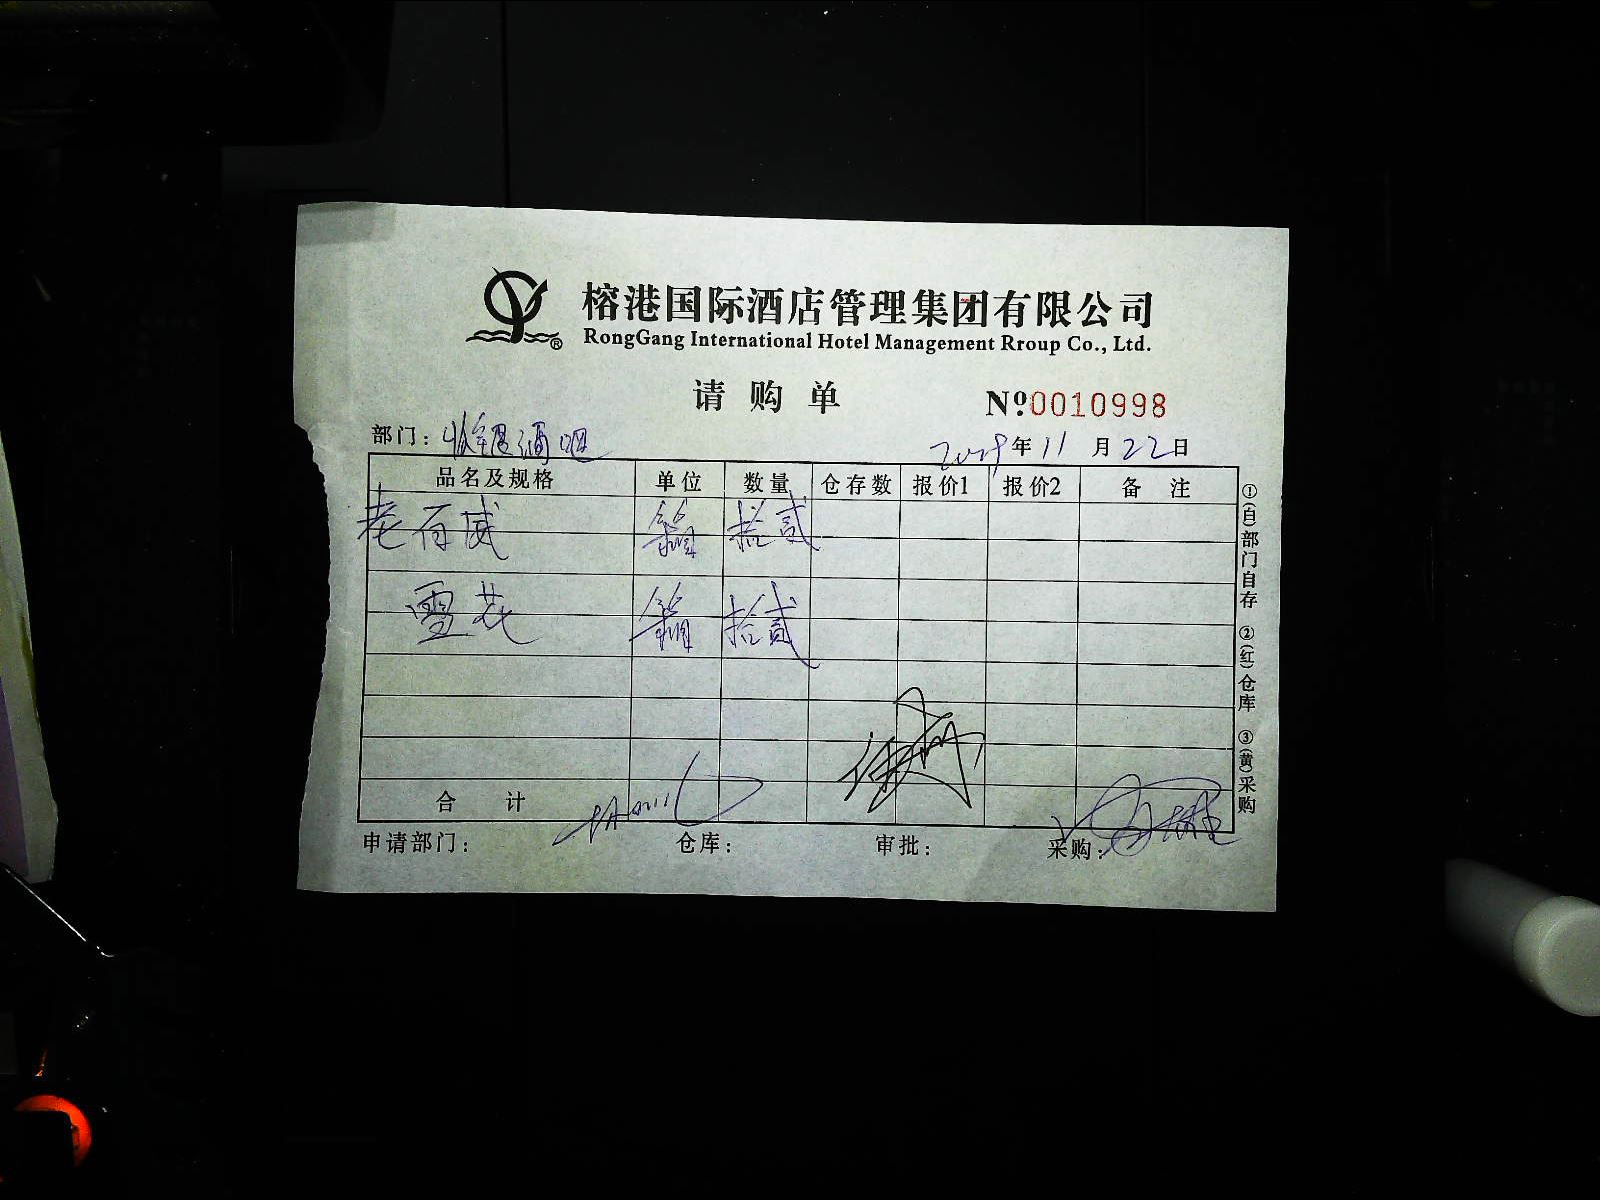 榕港国际酒店管理集团有限公司
RongGang International Hotel Management Rroup Co., Ltd.
请购单 Nº0010998
部门: 酒吧 年 11 月 22 日
品名及规格 单位 数量 仓存数 报价1 报价2 备 注
老百威 箱 拾贰
雪花 箱 拾贰
合 计
申请部门: 仓库: 审批: 采购:
①(白)部门自存 ②(红)仓库 ③(黄)采购